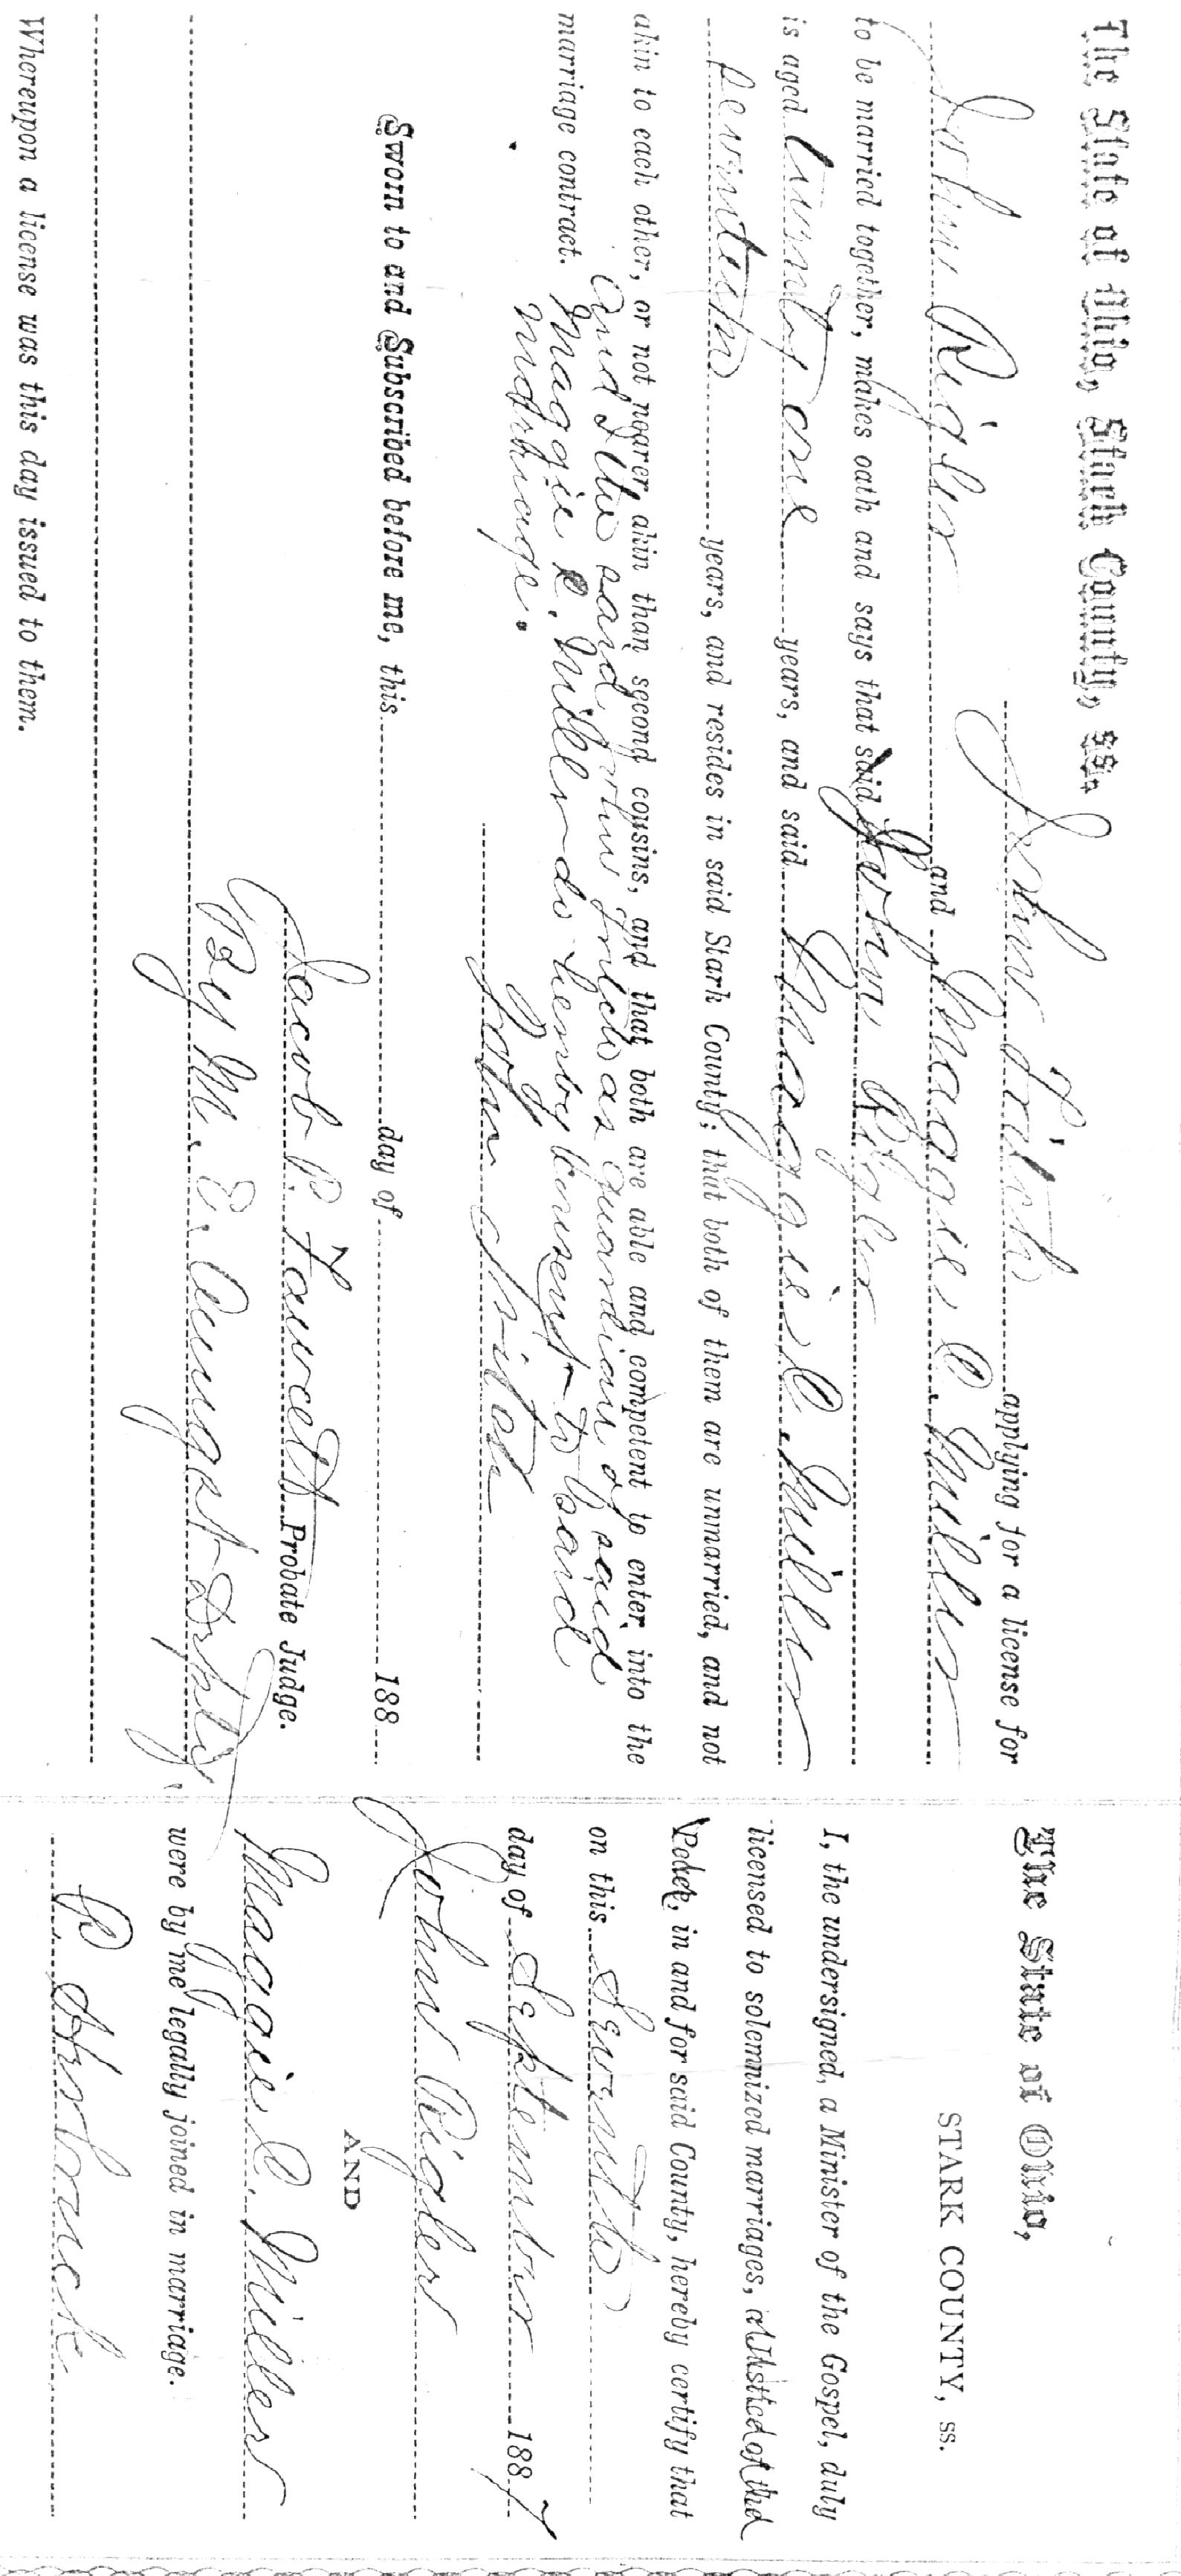 The State of Ohio, Stark County, ss.
John applying for a license for
John Rigler and Maggie C. Miller
to be married together, makes oath and says that said John Rigler
is aged Twenty one years, and said Maggie C. Miller
seventeen years, and resides in said Stark County; that both of them are unmarried, and not
akin to each other, or not nearer akin than second cousins, and that both are able and competent to enter into the
marriage contract. And I the said John as guardian of said
Maggie C. Miller do hereby consent to said
marriage.
John
Sworn to and Subscribed before me, this day of 188
Jacob P. Fawcett Probate Judge.
By M. E. Aungst Dpty.
Whereupon a license was this day issued to them.
The State of Ohio,
STARK COUNTY, ss.
I, the undersigned, a Minister of the Gospel, duly
licensed to solemnized marriages, a Justice of the
Peace, in and for said County, hereby certify that
on this Seventh
day of September 1887
John Rigler
AND
Maggie C. Miller
were by me legally joined in marriage.
P.